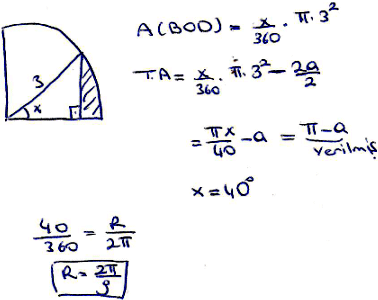 A(BOD) = x/360 · π·3²
3
x
T.A = x/360 · π·3² - 2a/2
= πx/40 - a = π-a
verilmiş
x = 40°
40/360 = R/2π
R = 2π/9